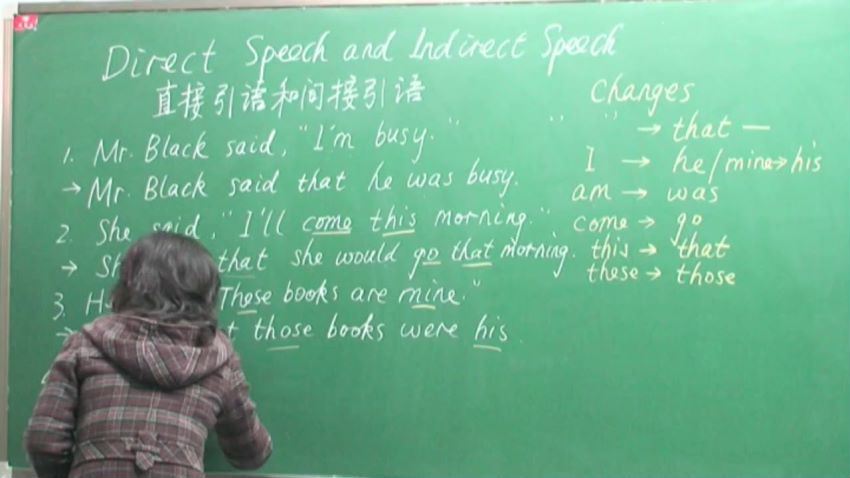 Direct Speech and Indirect Speech
直接引语和间接引语
1. Mr. Black said, "I'm busy."
→ Mr. Black said that he was busy.
2. She said, "I'll come this morning."
→ that she would go that morning.
3. These books are mine."
→ those books were his.
Changes
" " → that —
I → he/mine→his
am → was
come → go
this → that
these → those